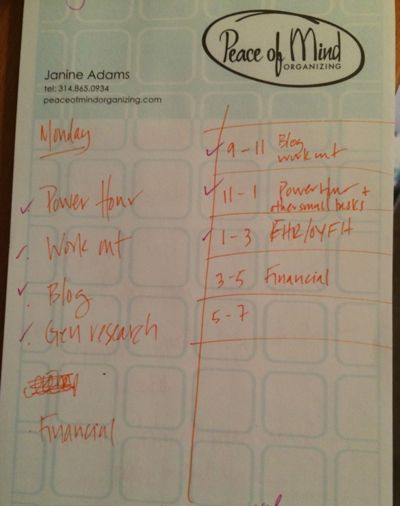 Peace of Mind
ORGANIZING
Janine Adams
tel: 314.865.0934
peaceofmindorganizing.com
Monday
Power Hour
Work out
Blog
Gen research
Financial
9-11 Blog
work out
11-1 Power Hour +
other small tasks
1-3
3-5 Financial
5-7